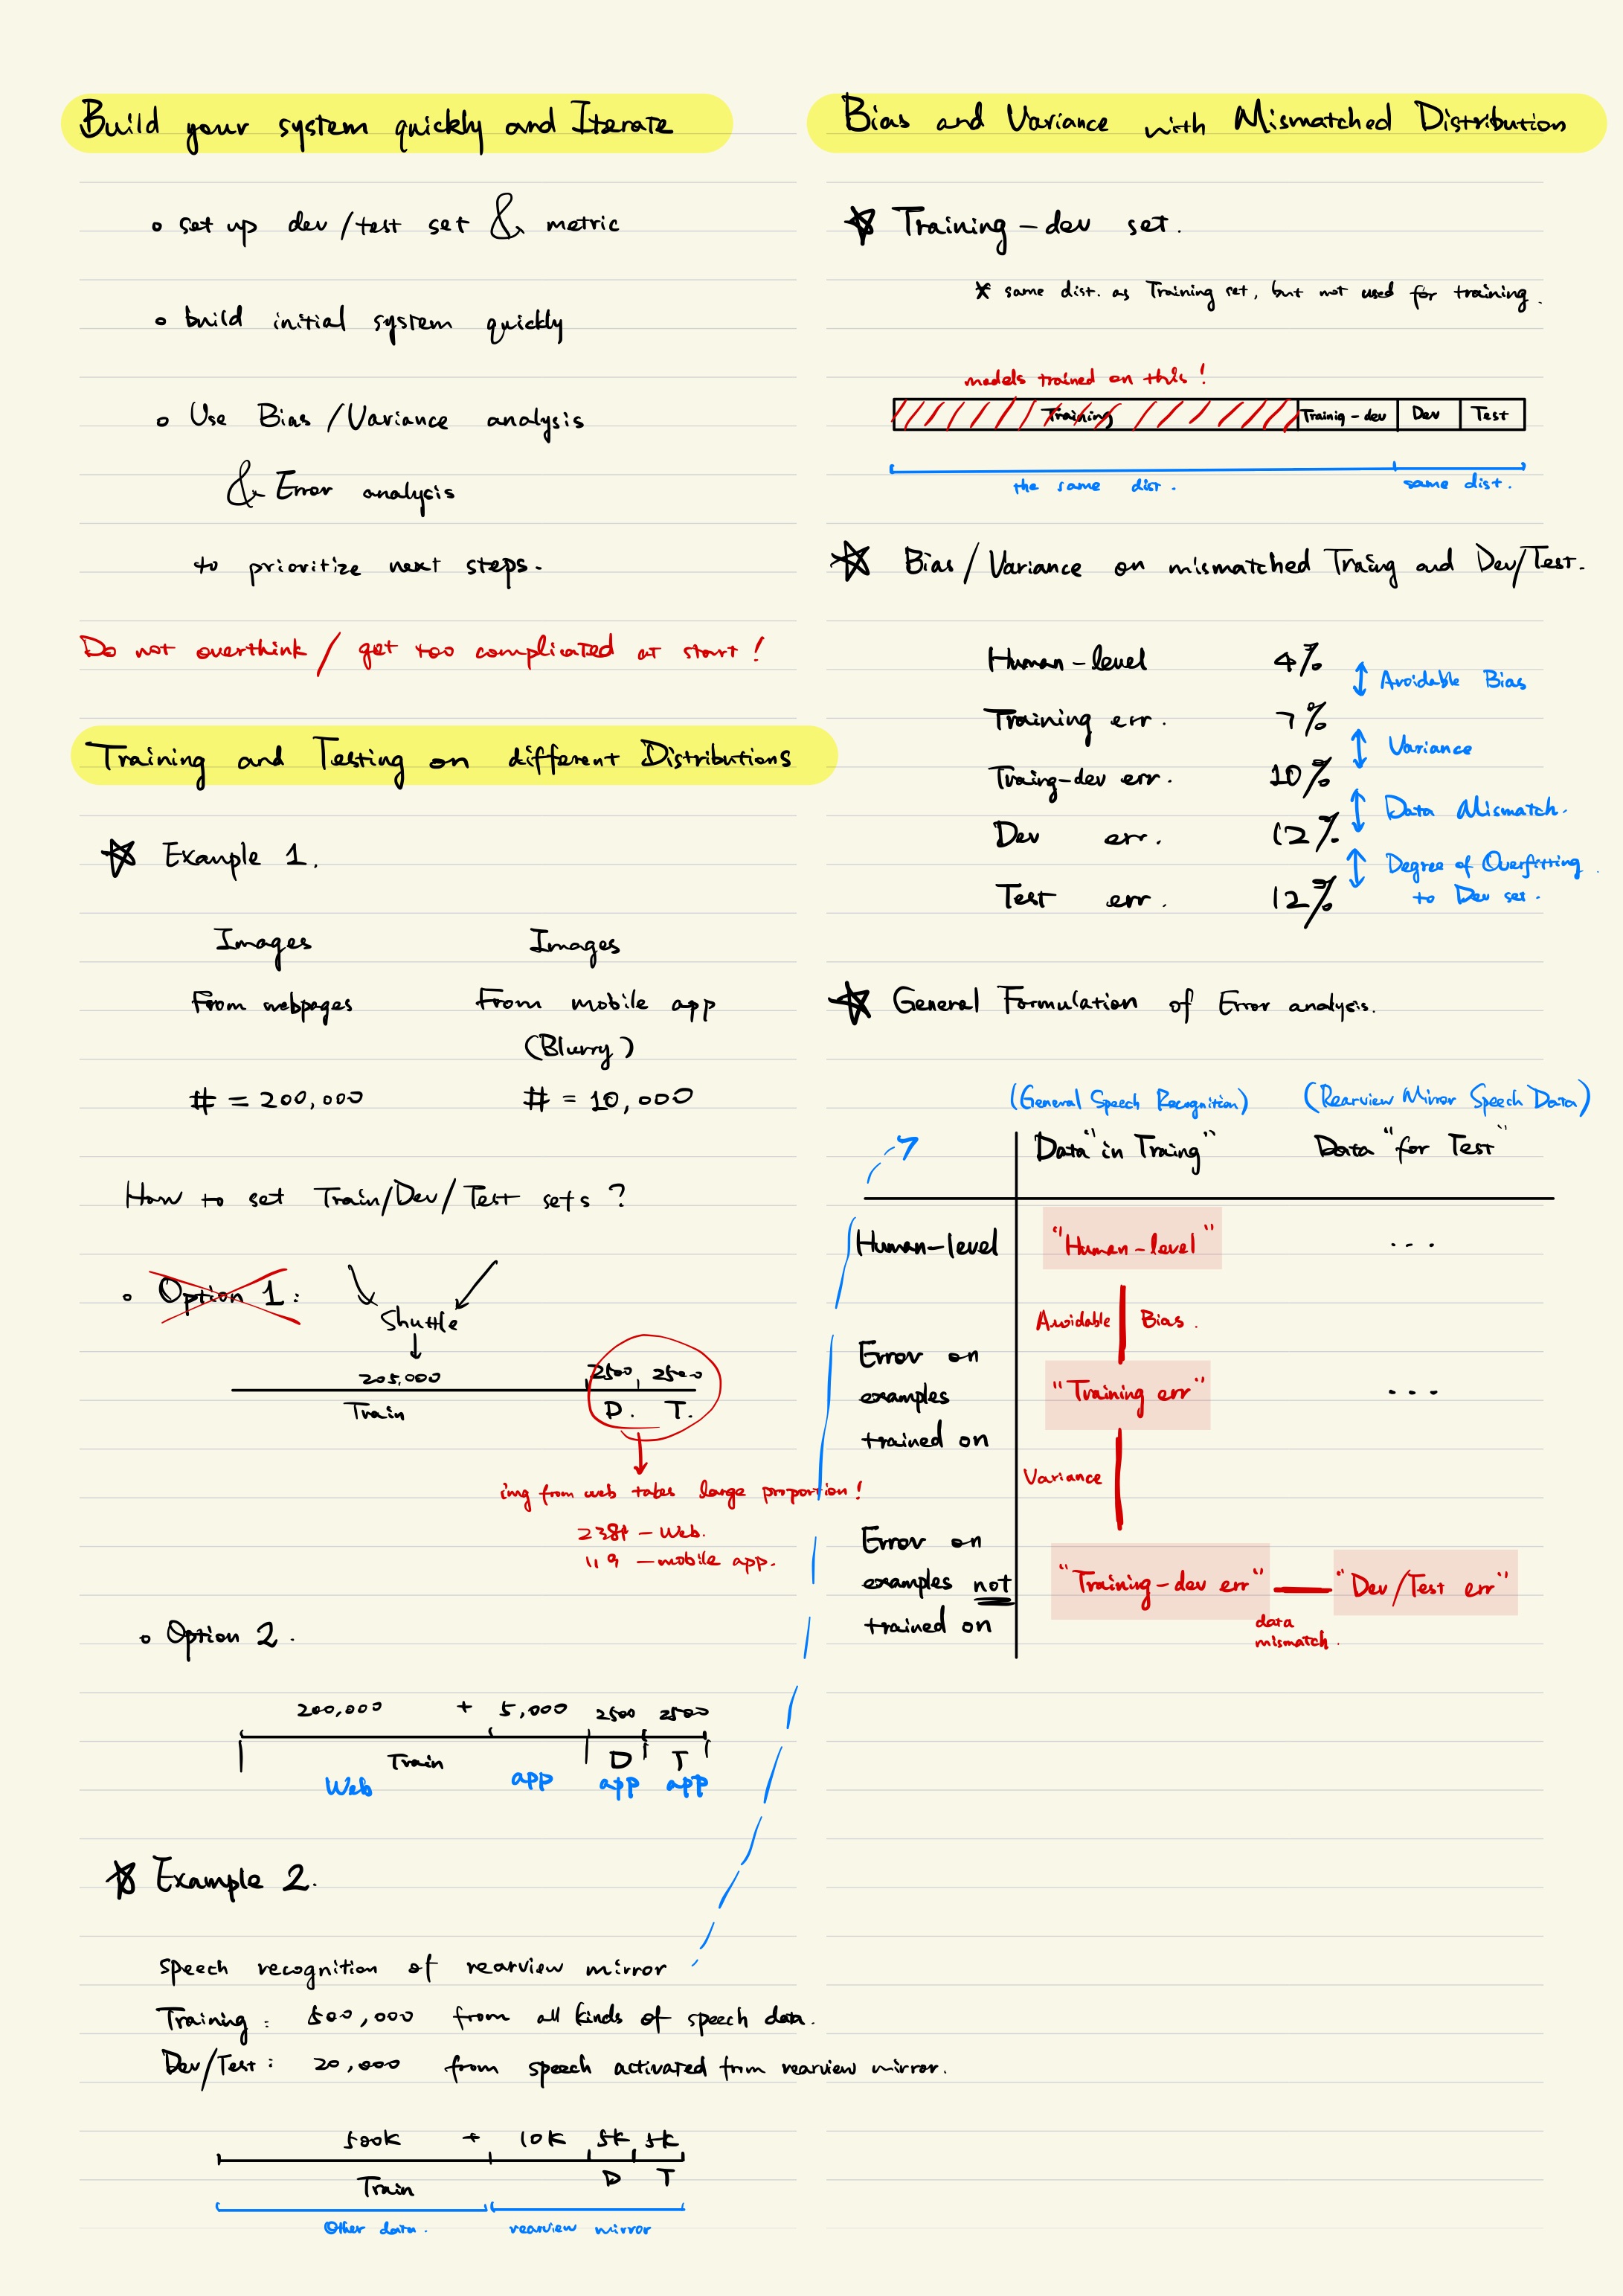 Build your system quickly and Iterate
• set up dev/test set & metric
• build initial system quickly
• Use Bias/Variance analysis
& Error analysis
to prioritize next steps.
Do not overthink / get too complicated at start!
Training and Testing on different Distributions
☆ Example 1.
Images Images
From webpages From mobile app
(Blurry)
# = 200,000 # = 10,000
How to set Train/Dev/Test sets?
• Option 1:
Shuttle
205,000 2500 2500
Train D. T.
img from web takes large proportion!
2381 - Web.
119 - mobile app.
• Option 2.
200,000 + 5,000 2500 2500
Train D T
Web app app app
☆ Example 2.
speech recognition of rearview mirror
Training: 500,000 from all kinds of speech data.
Dev/Test: 20,000 from speech activated from rearview mirror.
500K + 10K 5K 5K
Train D T
Other data. rearview mirror
Bias and Variance with Mismatched Distribution
☆ Training-dev set.
* same dist. as Training set, but not used for training.
models trained on this!
Training Trainig-dev Dev Test
the same dist. same dist.
☆ Bias/Variance on mismatched Traing and Dev/Test.
Human-level 4%
Avoidable Bias
Training err. 7%
Variance
Traing-dev err. 10%
Data Mismatch.
Dev err. 12%
Degree of Overfitting
to Dev set.
Test err. 12%
☆ General Formulation of Error analysis.
(General Speech Recognition) (Rearview Mirror Speech Data)
Data "in Traing" Data "for Test"
Human-level "Human-level" ...
Avoidable Bias.
Error on
examples "Training err" ...
trained on
Variance
Error on
examples not "Training-dev err" "Dev/Test err"
trained on data
mismatch.